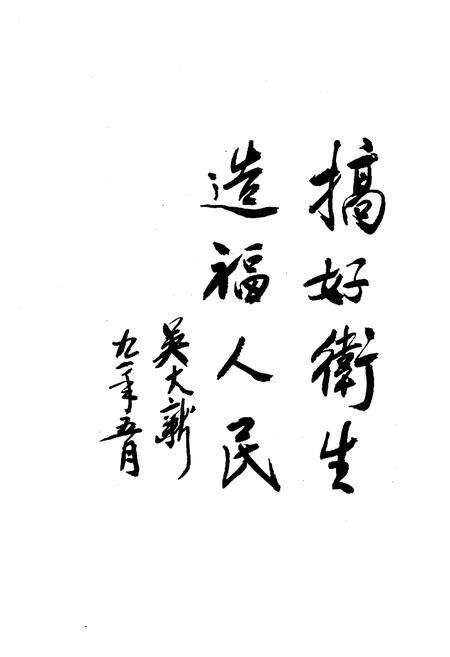 搞好衛生
造福人民
吴大新
九一年五月